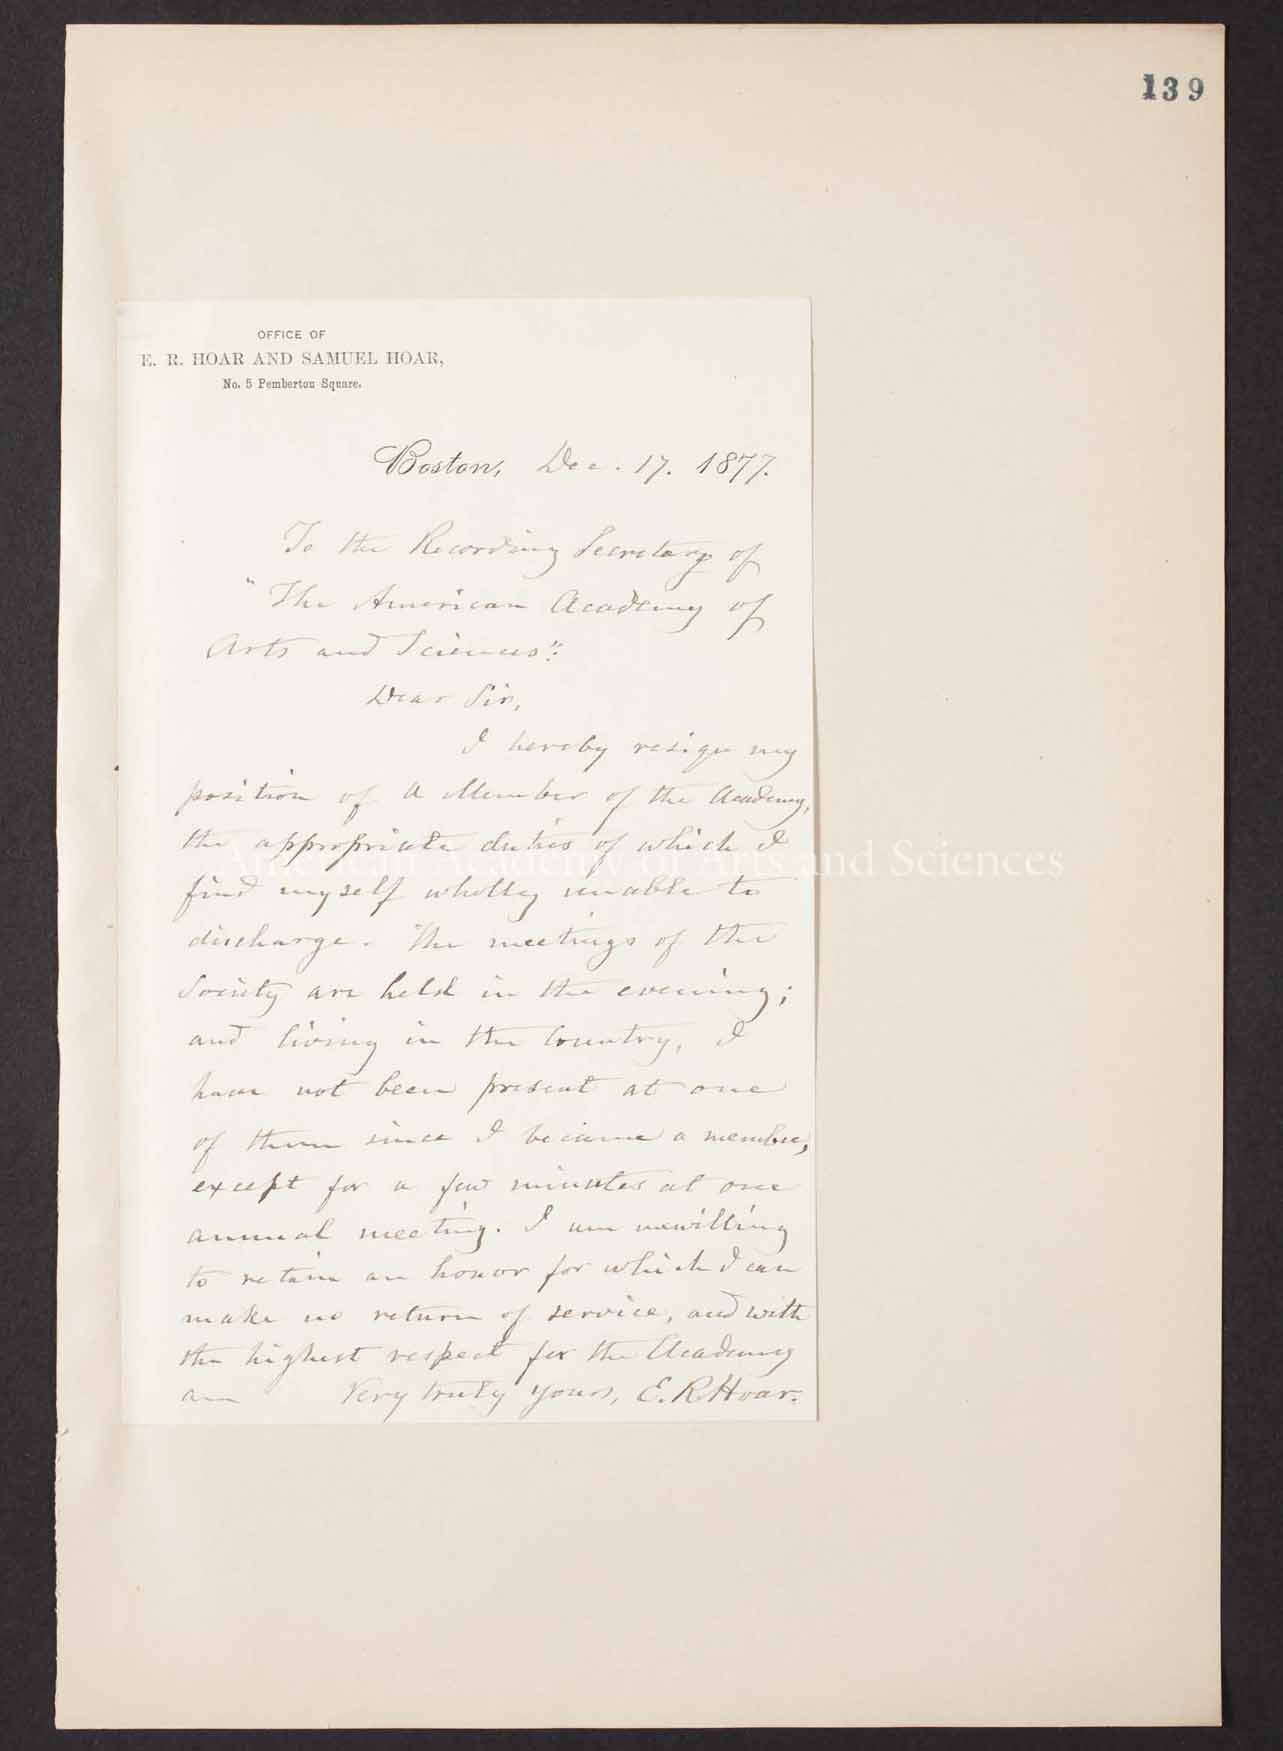 139
OFFICE OF
E. R. HOAR AND SAMUEL HOAR,
No. 5 Pemberton Square.
Boston, Dec. 17. 1877.
To the Recording Secretary of
"The American Academy of
Arts and Sciences":
Dear Sir,
I hereby resign my
position of a Member of the Academy,
the appropriate duties of which I
American Academy of Arts and Sciences
find myself wholly unable to
discharge. The meetings of the
Society are held in the evening;
and living in the Country, I
have not been present at one
of them since I became a member,
except for a few minutes at one
annual meeting. I am unwilling
to retain an honor for which I can
make no return of service, and with
the highest respect for the Academy
am Very truly yours, E. R. Hoar.